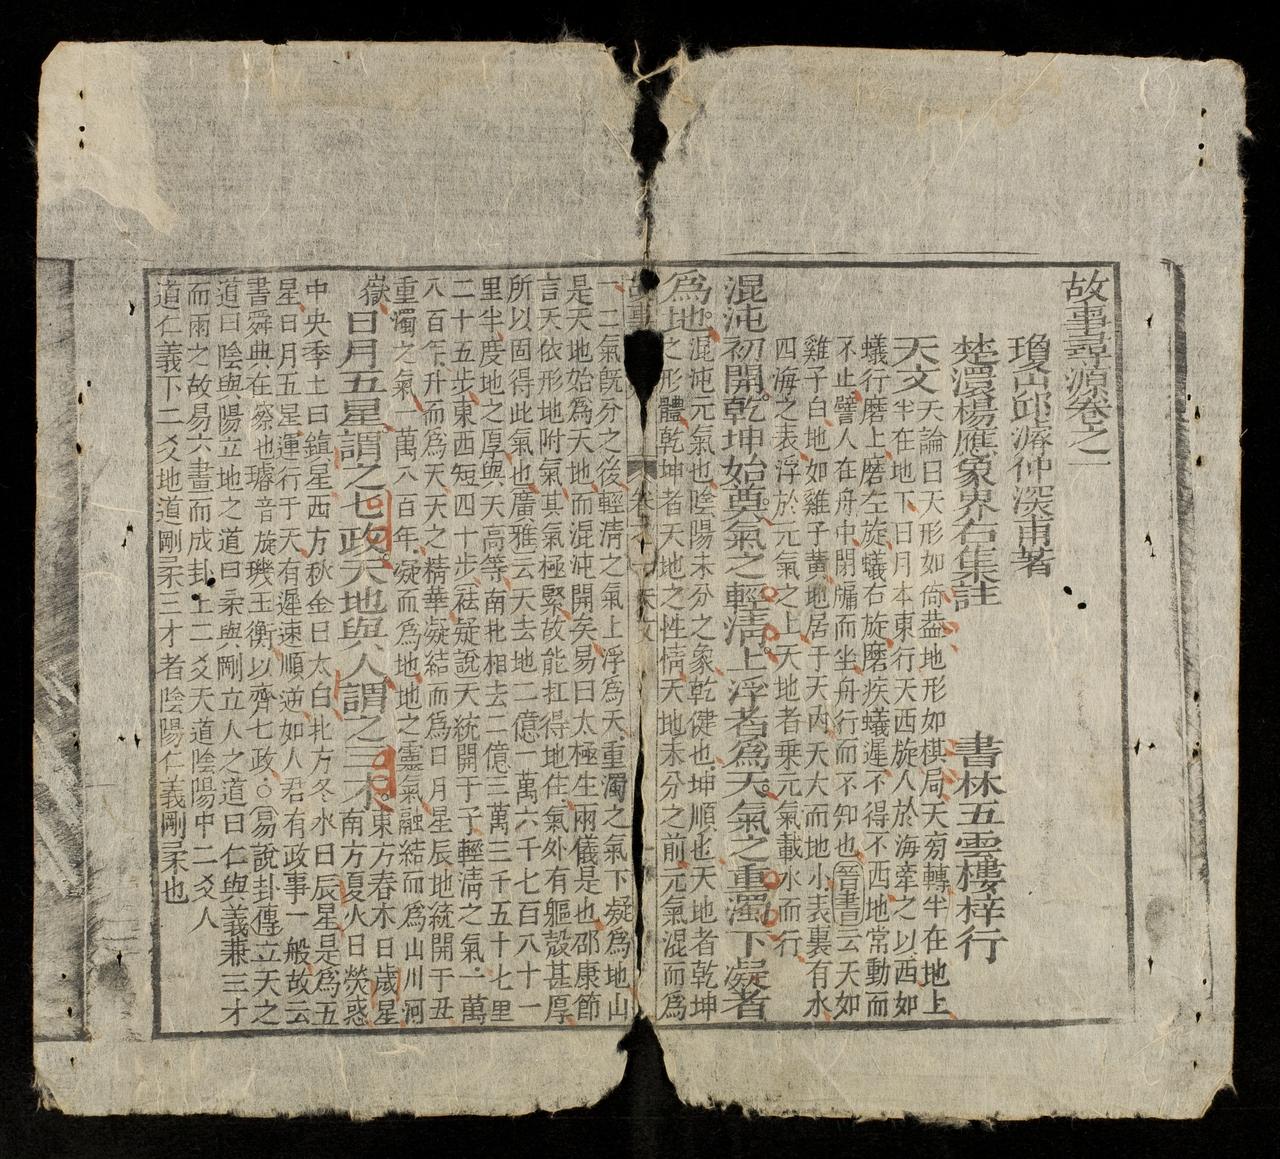 故事尋源卷之一
瓊崮邱濬仲深甫著
楚澴楊應象界石集註
書林五雲樓梓行
天文天論曰天形如倚葢地形如棋局天旁轉半在地上
半在地下日月本東行天西旋人於海牽之以西如
蟻行磨上磨左旋蟻右旋磨疾蟻遲不得不西地常動而
不止譬人在舟中閉牖而坐舟行而不知也晉書云天如
雞子白地如雞子黄地居于天內天大而地小表裏有水
四海之表浮於元氣之上天地者乗元氣載水而行
混沌初開乾坤始奠氣之輕淸上浮者為天氣之重濁下凝者
為地混沌元氣也陰陽未分之象乾健也坤順也天地者乾坤
之形體乾坤者天地之性情天地未分之前元氣混而爲
一二氣旣分之後輕淸之氣上浮爲天重濁之氣下凝爲地山
是天地始爲天地而混沌開矣易曰太極生兩儀是也邵康節
言天依形地附氣其氣極緊故能扛得地住氣外有軀殻甚厚
所以固得此氣也廣雅云天去地二億一萬六千七百八十一
里半度地之厚與天高等南北相去二億三萬三千五十七里
二十五步東西短四十步袪疑說天統開于子輕淸之氣一萬
八百年升而爲天天之精華凝結而爲日月星辰地統開于丑
重濁之氣一萬八百年凝而爲地地之靈氣融結而爲山川河
嶽日月五星謂之七政天地與人謂之三才東方春木日歲星
南方夏火日熒惑
中央季土曰鎮星西方秋金曰太白北方冬水曰辰星是爲五
星日月五星運行于天有遲速順逆如人君有政事一般故云
書舜典在察也璿音旋璣玉衡以齊七政○易說卦傳立天之
道曰陰與陽立地之道曰柔與剛立人之道曰仁與義兼三才
而兩之故易六畫而成卦上二爻天道陰陽中二爻人
道仁義下二爻地道剛柔三才者陰陽仁義剛柔也